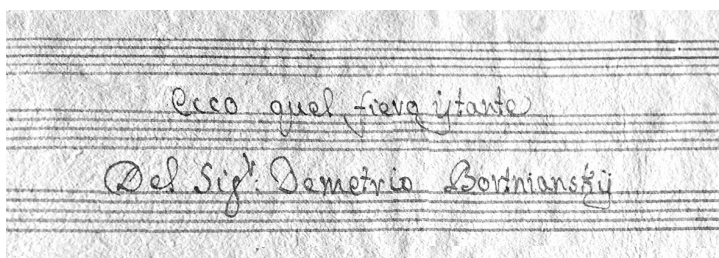 Ecco quel fiero ÿtante
Del Sig.r: Demetrio Bortnianskÿ